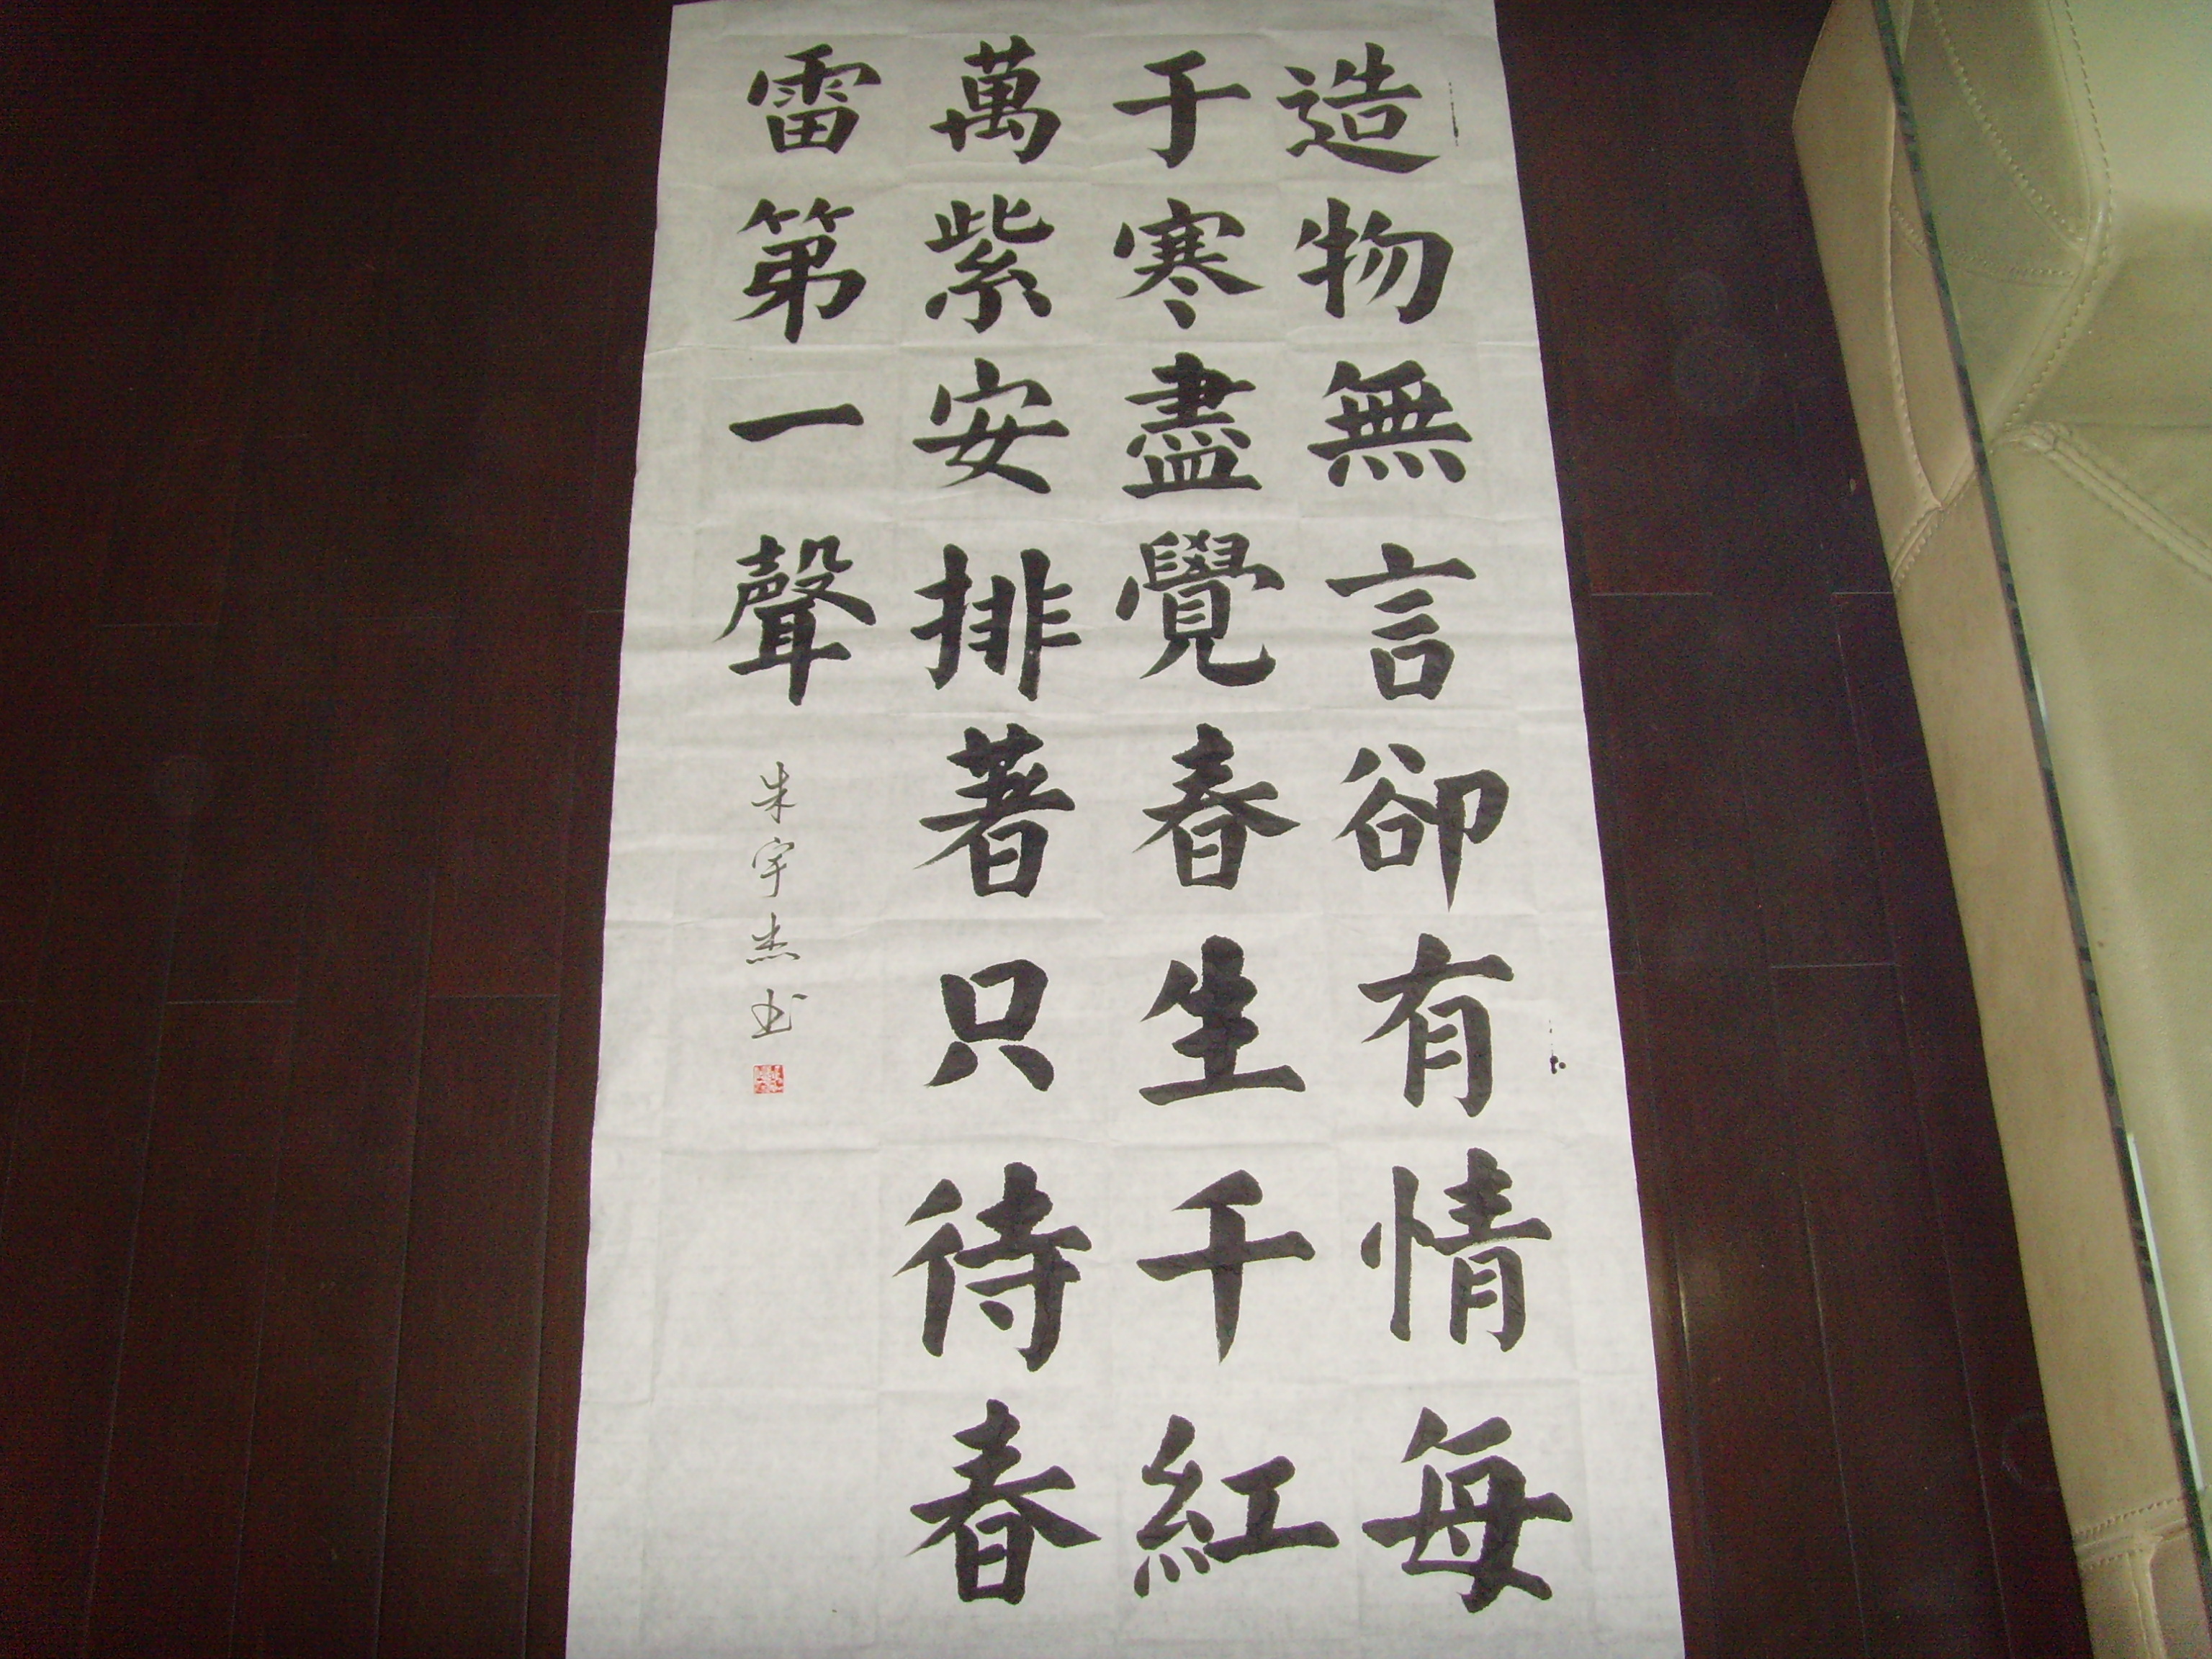 造物無言卻有情每
于寒盡覺春生千紅
萬紫安排著只待春
雷第一聲
朱宇杰书